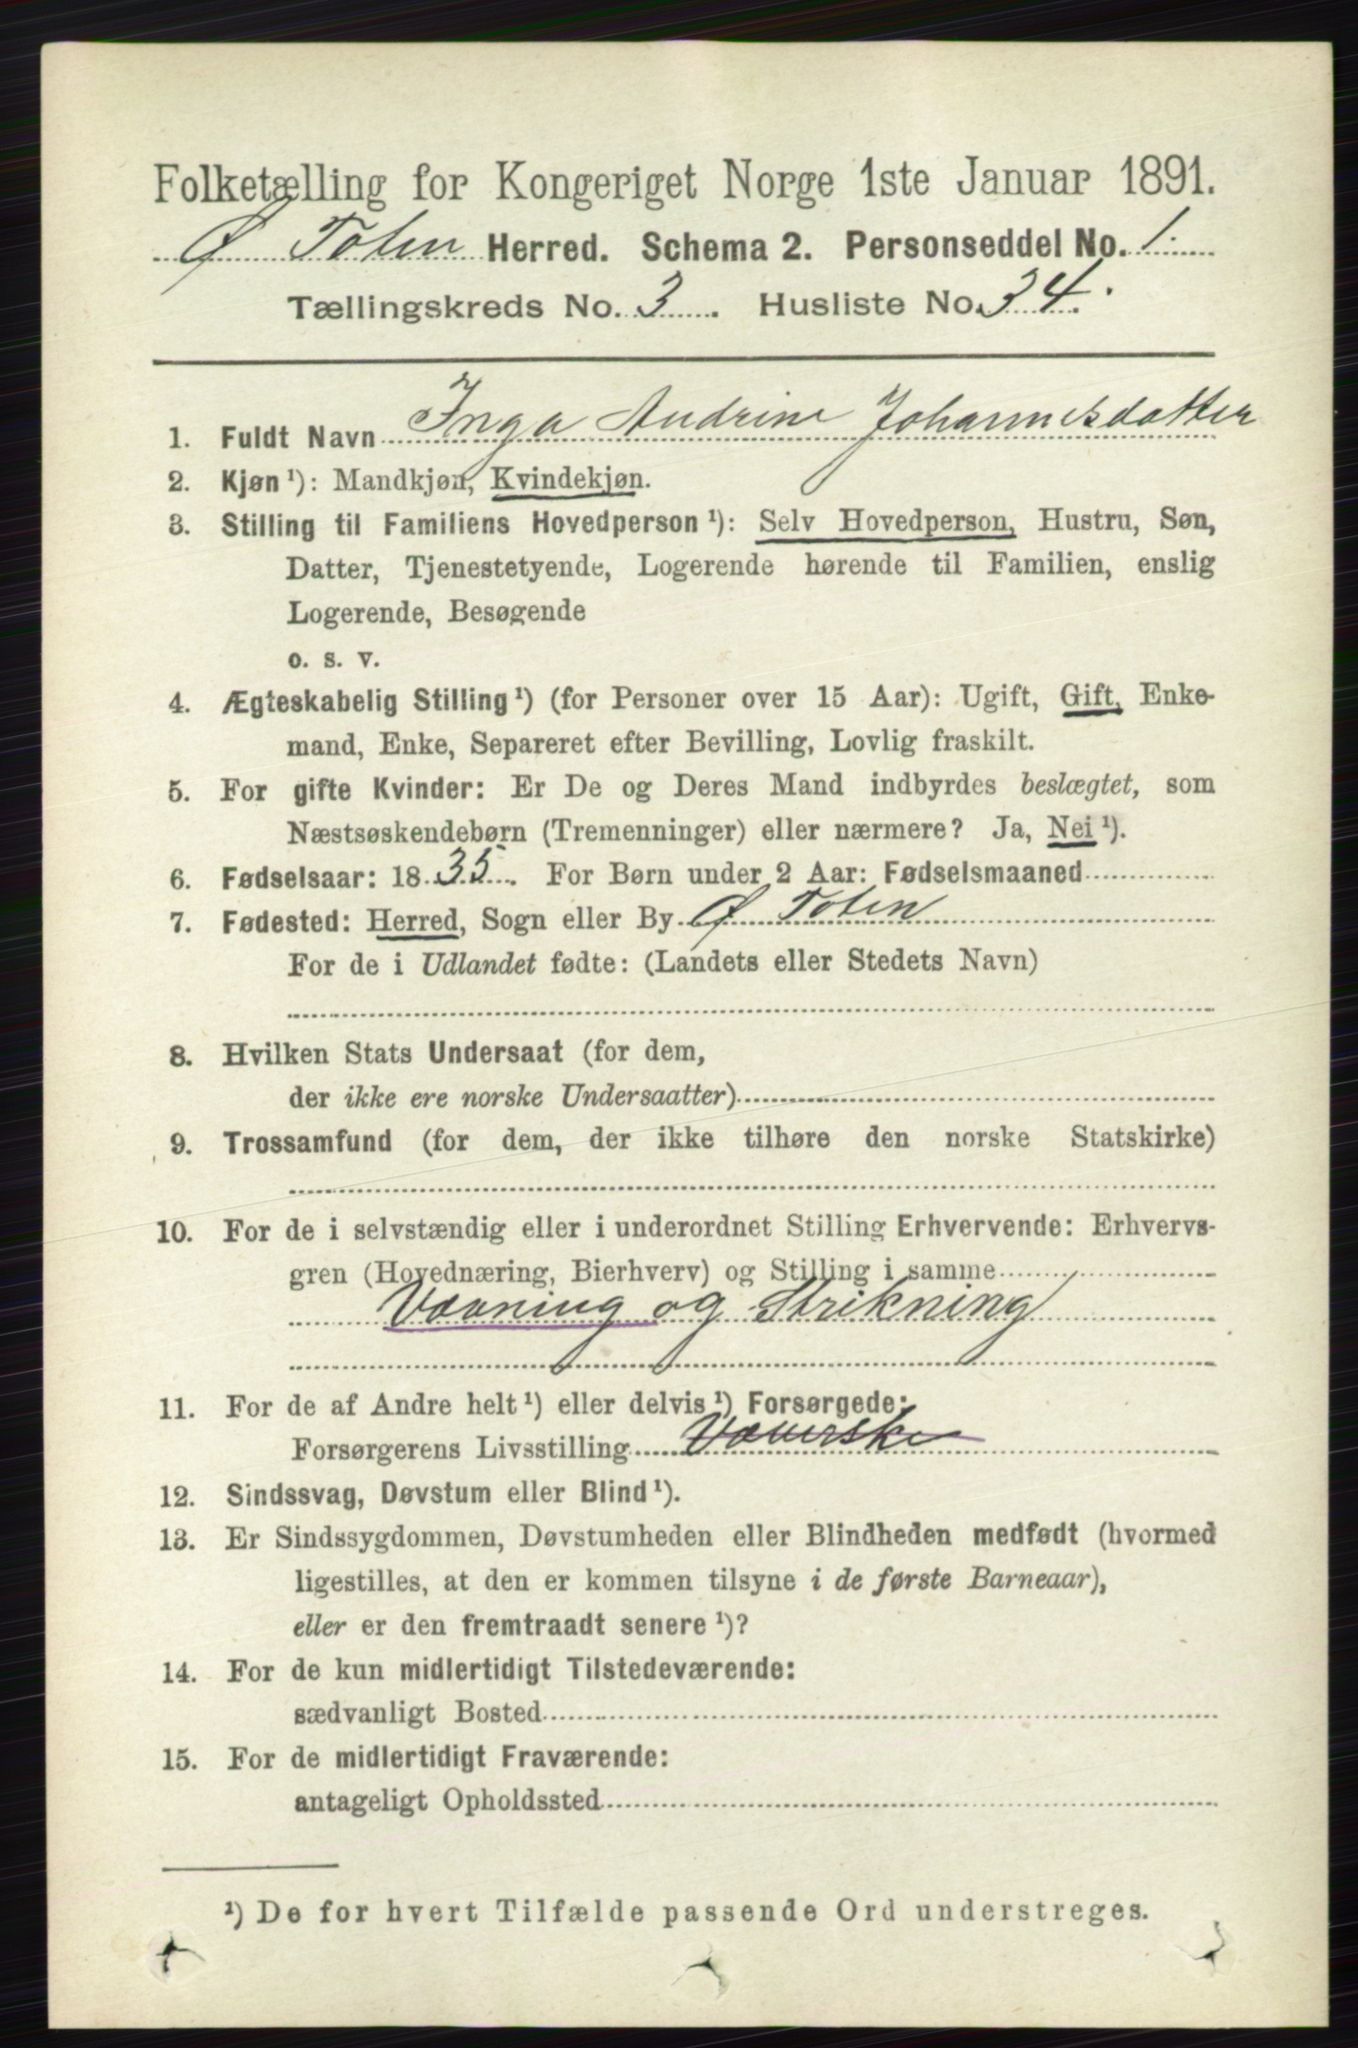 Folketælling for Kongeriget Norge 1ste Januar 1891.
Ø Toten Herred. Schema 2. Personseddel No. 1.
Tællingskreds No. 3. Husliste No. 34.
1. Fuldt Navn Inga Andrine Johannesdatter
2. Kjøn ¹): Mandkjøn, Kvindekjøn.
3. Stilling til Familiens Hovedperson ¹): Selv Hovedperson, Hustru, Søn,
Datter, Tjenestetyende, Logerende hørende til Familien, enslig
Logerende, Besøgende
o. s. v.
4. Ægteskabelig Stilling ¹) (for Personer over 15 Aar): Ugift, Gift, Enke-
mand, Enke, Separeret efter Bevilling, Lovlig fraskilt.
5. For gifte Kvinder: Er De og Deres Mand indbyrdes beslægtet, som
Næstsøskendebørn (Tremenninger) eller nærmere? Ja, Nei ¹).
6. Fødselsaar: 1835. For Børn under 2 Aar: Fødselsmaaned
7. Fødested: Herred, Sogn eller By Ø Toten
For de i Udlandet fødte: (Landets eller Stedets Navn)
8. Hvilken Stats Undersaat (for dem,
der ikke ere norske Undersaatter)
9. Trossamfund (for dem, der ikke tilhøre den norske Statskirke)
10. For de i selvstændig eller i underordnet Stilling Erhvervende: Erhvervs-
gren (Hovednæring, Bierhverv) og Stilling i samme
Vævning og Strikning
11. For de af Andre helt ¹) eller delvis ¹) Forsørgede:
Forsørgerens Livsstilling Væverske
12. Sindssvag, Døvstum eller Blind ¹).
13. Er Sindssygdommen, Døvstumheden eller Blindheden medfødt (hvormed
ligestilles, at den er kommen tilsyne i de første Barneaar),
eller er den fremtraadt senere ¹)?
14. For de kun midlertidigt Tilstedeværende:
sædvanligt Bosted
15. For de midlertidigt Fraværende:
antageligt Opholdssted
¹) De for hvert Tilfælde passende Ord understreges.